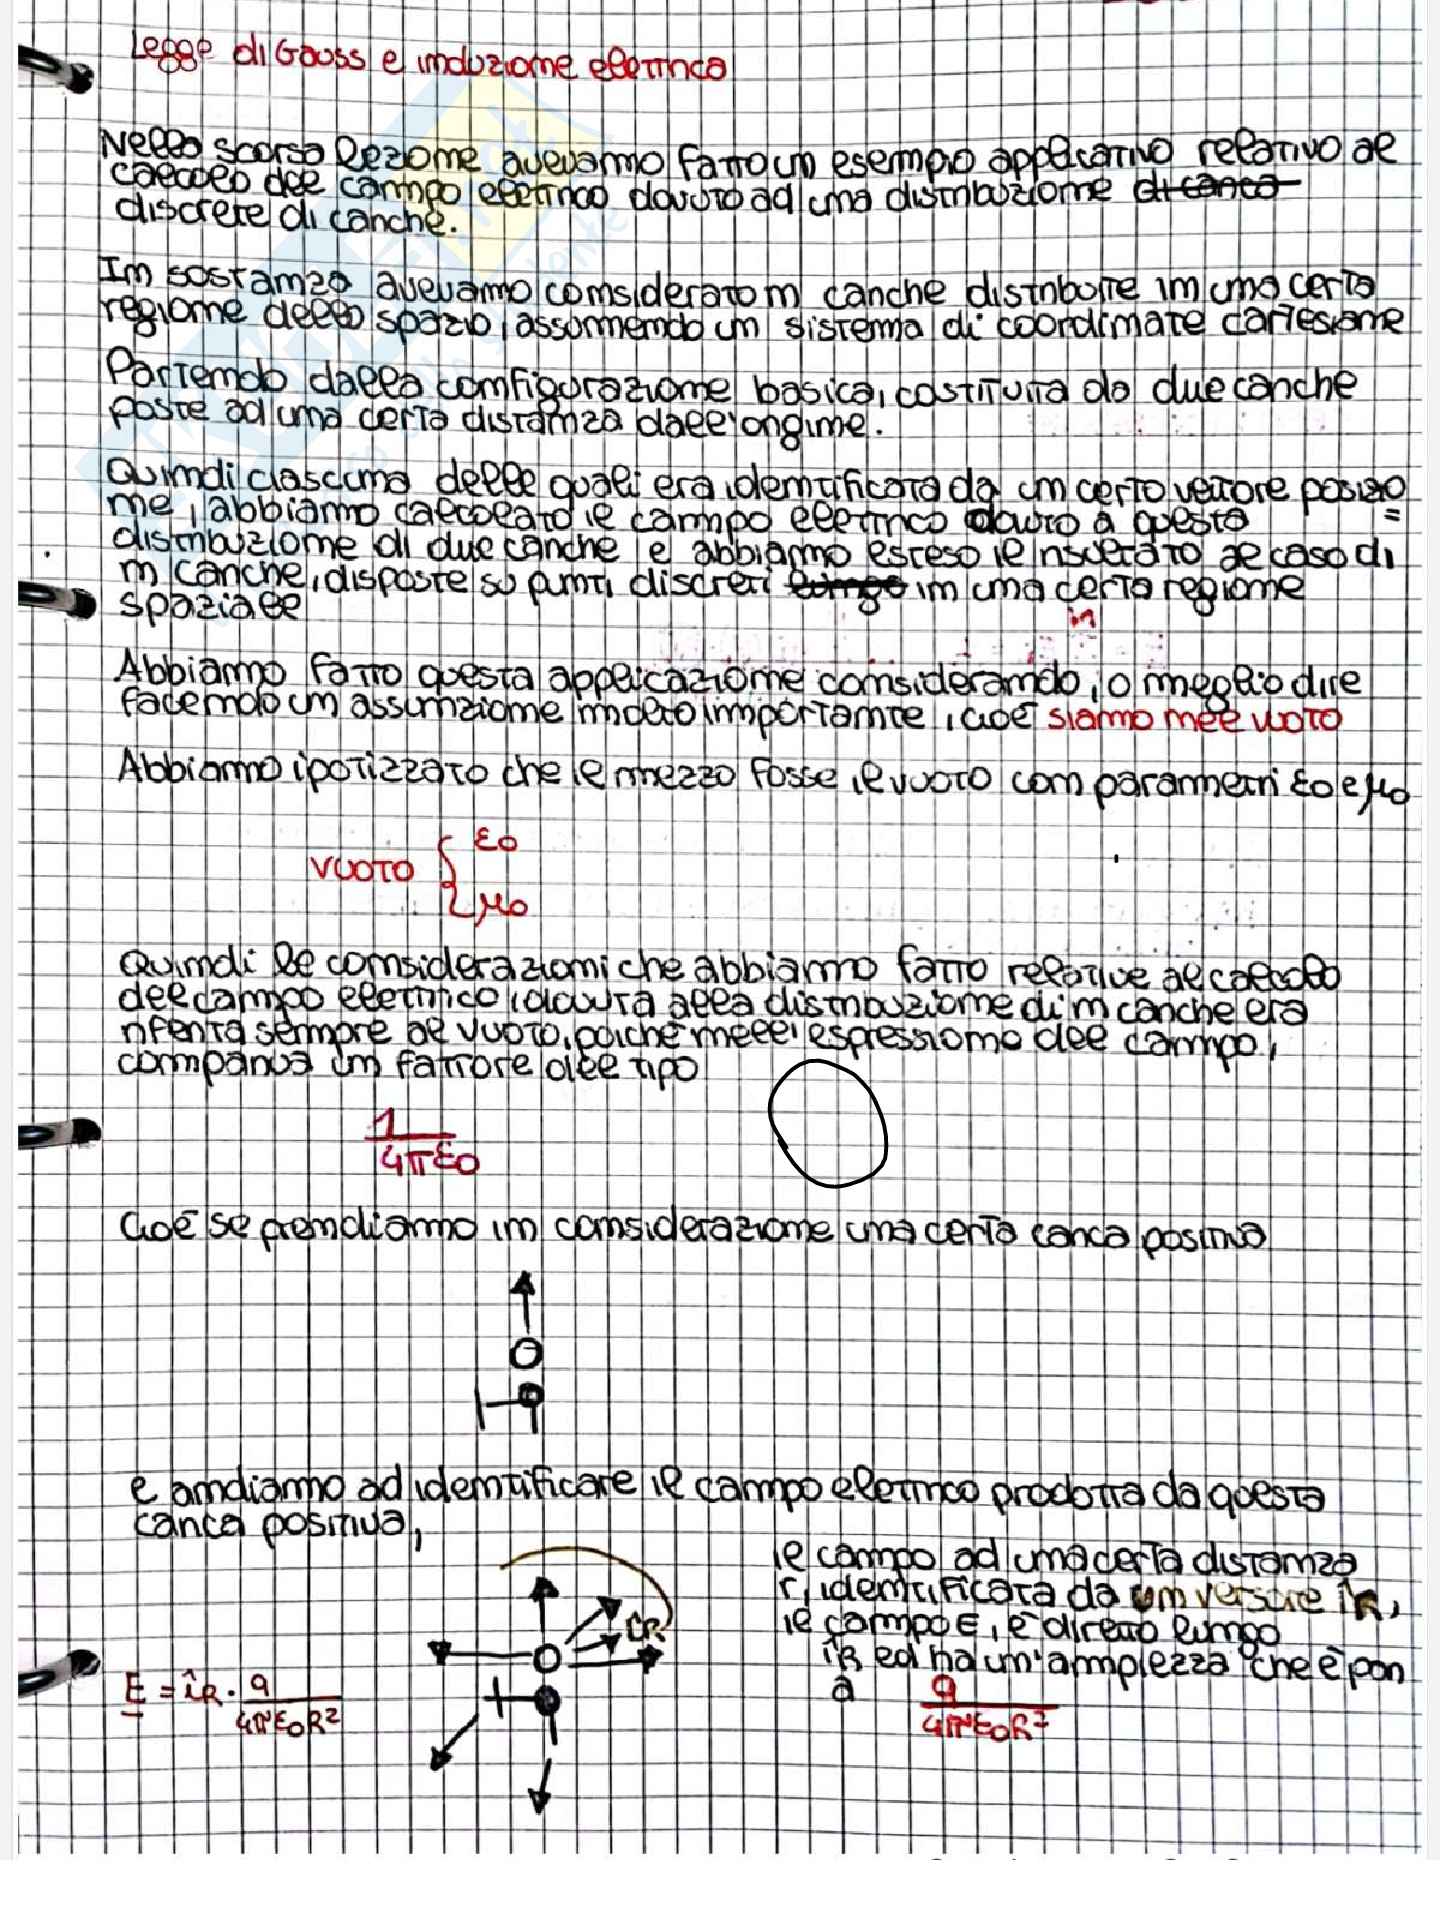 Legge di Gauss e induzione elettrica
Nella scorsa lezione avevamo fatto un esempio applicativo relativo al
calcolo del campo elettrico dovuto ad una distribuzione di carica
discrete di cariche.
In sostanza avevamo considerato n cariche distribuite in una certa
regione dello spazio, assumendo un sistema di coordinate cartesiane
Partendo dalla configurazione basica, costituita da due cariche
poste ad una certa distanza dall'origine.
Quindi ciascuna delle quali era identificata da un certo vettore posizio
ne, abbiamo calcolato il campo elettrico dovuto a questa
distribuzione di due cariche e abbiamo esteso il risultato al caso di
n cariche, disposte su punti discreti in una certa regione
spaziale
Abbiamo fatto questa applicazione considerando, o meglio dire
facendo un assunzione molto importante, cioè siamo nel vuoto
Abbiamo ipotizzato che il mezzo fosse il vuoto con parametri ε0 e μ0
VUOTO { ε0
μ0
Quindi le considerazioni che abbiamo fatto relative al calcolo
del campo elettrico, dovuta alla distribuzione di n cariche era
riferita sempre al vuoto, poiché nell'espressione del campo,
compariva un fattore del tipo
1
4πε0
Cioè se prendiamo in considerazione una certa carica positiva
e andiamo ad identificare il campo elettrico prodotta da questa
carica positiva,
il campo ad una certa distanza
r, identificata da un versore iR,
il campo E, è diretto lungo
iR ed ha un'ampiezza che è pari
a q / 4πε0R²
îR
E = îR · q / 4πε0R²